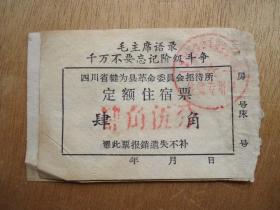 毛主席语录
千万不要忘记阶级斗争
四川省犍为县革命委员会招待所
定额住宿票
肆角
肆角伍分
凭此票报销遗失不补
年 月 日
房号
床号